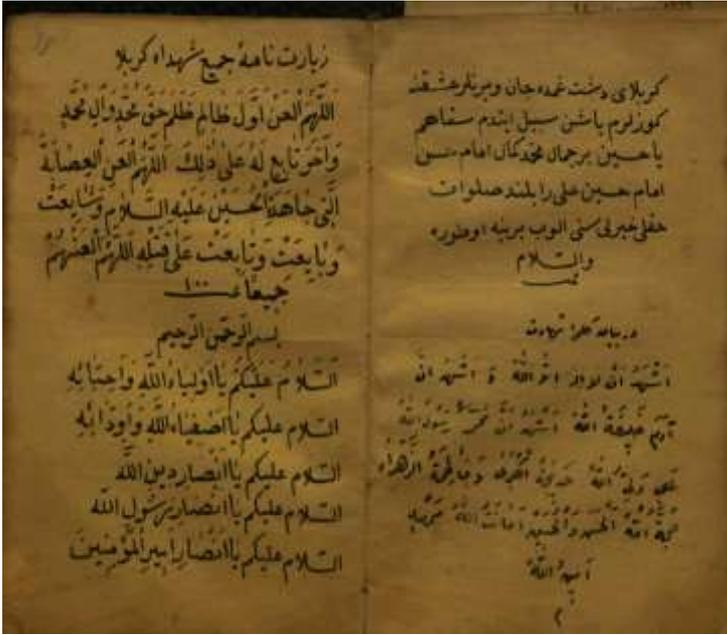 كربلاى دشت غمده جان ويرنلر عشقنه
كوزلرم ياشن سبيل ايتدم سقاهم
يا حسين بر جمال محمد كمال امام حسن
امام حسين على را بلند صلوات
سنى الوب يرينه اوطوره
والسلام
اشهد ان لا اله الا الله و اشهد ان
آدم خليفة الله اشهد ان محمد رسول الله
على ولى الله خديجة الكبرى و فاطمة الزهراء
الله الحسن والحسين
زيارت نامهٔ جميع شهداء كربلا
اَللّٰهُمَّ الْعَنْ اَوَّلَ ظَالِمٍ ظَلَمَ حَقَّ مُحَمَّدٍ وَآلِ مُحَمَّدٍ
وَآخِرَ تَابِعٍ لَهُ عَلٰى ذٰلِكَ اَللّٰهُمَّ الْعَنِ الْعِصَابَةَ
الَّتِى جَاهَدَتِ الْحُسَيْنَ عَلَيْهِ السَّلَامُ وَشَايَعَتْ
وَبَايَعَتْ وَتَابَعَتْ عَلٰى قَتْلِهِ اَللّٰهُمَّ الْعَنْهُمْ
جَمِيعًا ١٠٠
بسم الله الرحمن الرحيم
اَلسَّلَامُ عَلَيْكُمْ يَا اَوْلِيَاءَ اللّٰهِ وَاَحِبَّائِهِ
السلام عليكم يَا اَصْفِيَاءَ اللّٰهِ وَاَوِدَّائِهِ
السلام عليكم يَا اَنْصَارَ دِينِ اللّٰهِ
السلام عليكم يَا اَنْصَارَ رَسُولِ اللّٰهِ
السلام عليكم يَا اَنْصَارَ اَمِيرِ الْمُؤْمِنِينَ